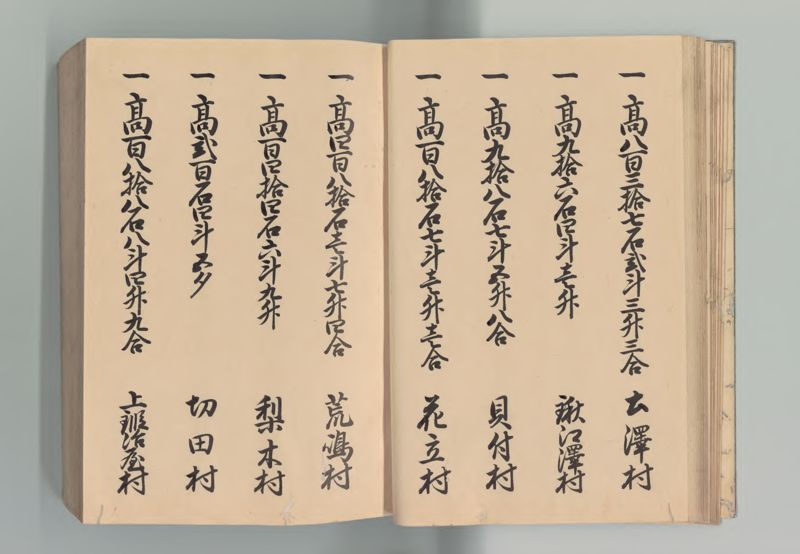 一高八百三拾七石弐斗三升三合 古澤村
一高九拾六石四斗壱升 鍬江澤村
一高九拾八石七斗五升八合 貝付村
一高百八拾石七斗壱升壱合 花立村
一高四百八拾石壱斗七升四合 荒嶋村
一高百四拾四石六斗九升 梨木村
一高弐百石四斗五夕 切田村
一高百八拾八石八斗四升九合 上鍜冶屋村